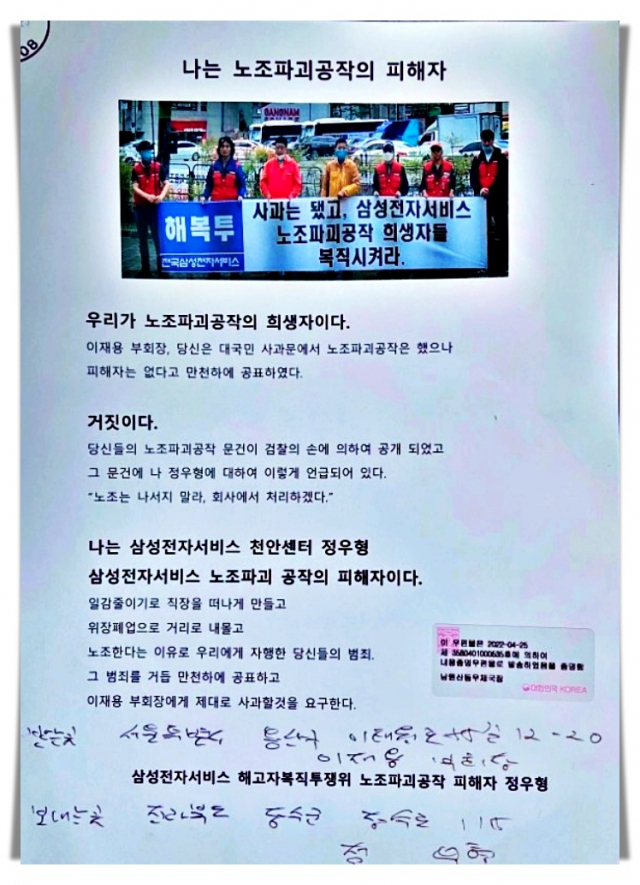 08
나는 노조파괴공작의 피해자
GANGNAM
해복투
전국삼성전자서비스
사과는 됐고, 삼성전자서비스
노조파괴공작 희생자들
복직시켜라.
우리가 노조파괴공작의 희생자이다.
이재용 부회장, 당신은 대국민 사과문에서 노조파괴공작은 했으나
피해자는 없다고 만천하에 공표하였다.
거짓이다.
당신들의 노조파괴공작 문건이 검찰의 손에 의하여 공개 되었고
그 문건에 나 정우형에 대하여 이렇게 언급되어 있다.
"노조는 나서지 말라, 회사에서 처리하겠다."
나는 삼성전자서비스 천안센터 정우형
삼성전자서비스 노조파괴 공작의 피해자이다.
일감줄이기로 직장을 떠나게 만들고
위장폐업으로 거리로 내몰고
노조한다는 이유로 우리에게 자행한 당신들의 범죄.
그 범죄를 거듭 만천하에 공표하고
이재용 부회장에게 제대로 사과할것을 요구한다.
이 우편물은 2022-04-25
제 3580401000635호에 의하여
내용증명우편물로 발송하였음을 증명함
남원산동우체국장
대한민국 KOREA
받는곳 서울특별시 용산구 이태원로 12-20
이재용 부회장
삼성전자서비스 해고자복직투쟁위 노조파괴공작 피해자 정우형
보내는곳 전라북도 장수군 장수로 115
정우형